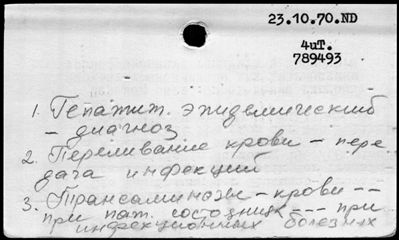 23.10.70.ND
4иТ.
789493
1. Гепатит. эпидемический
- диагноз
2. Переливание крови - пере
дача инфекций
3. Трансаминазы - крови --
при пат. состояниях --- при
инфекционных болезнях